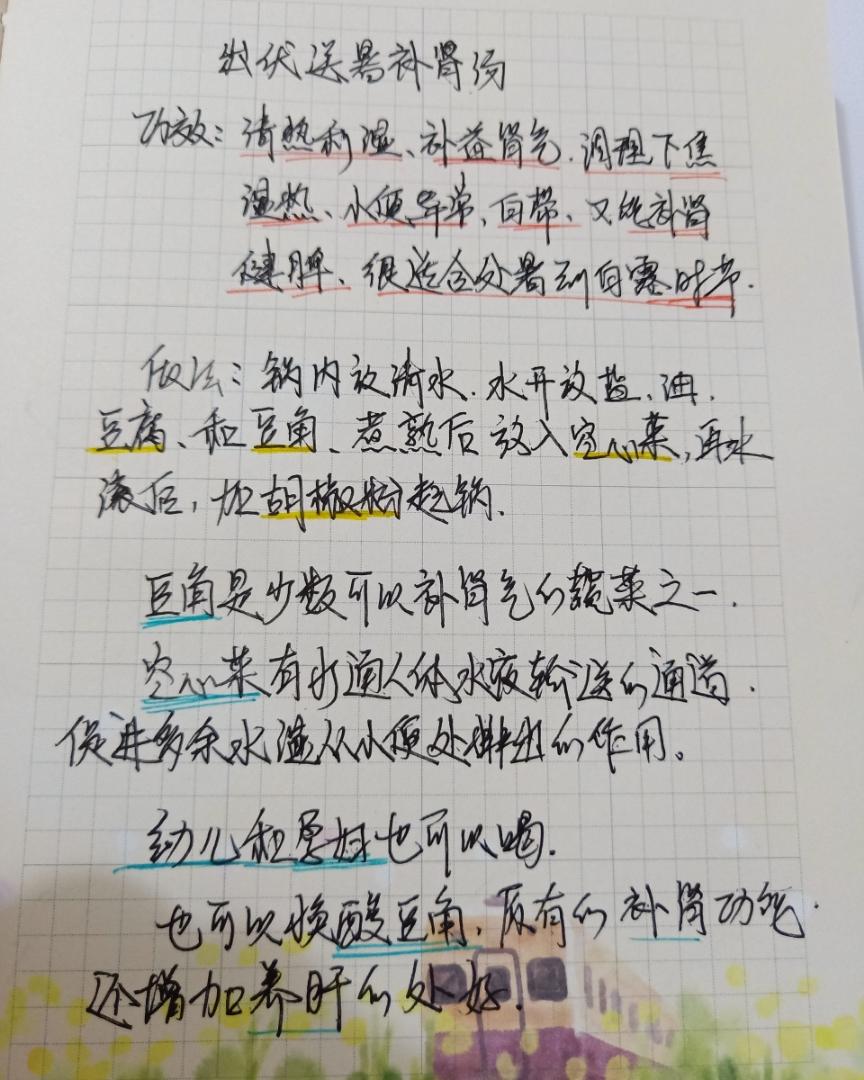 出伏送暑补肾汤
功效：清热利湿、补益肾气.调理下焦
湿热、小便异常、白带、又能补肾
健脾、很适合处暑到白露时节.
做法：锅内放清水.水开放盐、油.
豆腐、和豆角、煮熟后放入空心菜,再水
滚后，加胡椒粉起锅.
豆角是少数可以补肾气的蔬菜之一.
空心菜有打通人体水液输送的通道.
促进多余水湿从小便处排出的作用。
幼儿和孕妇也可以喝.
也可以换酸豆角、原有的补肾功能.
还增加养肝的处好.